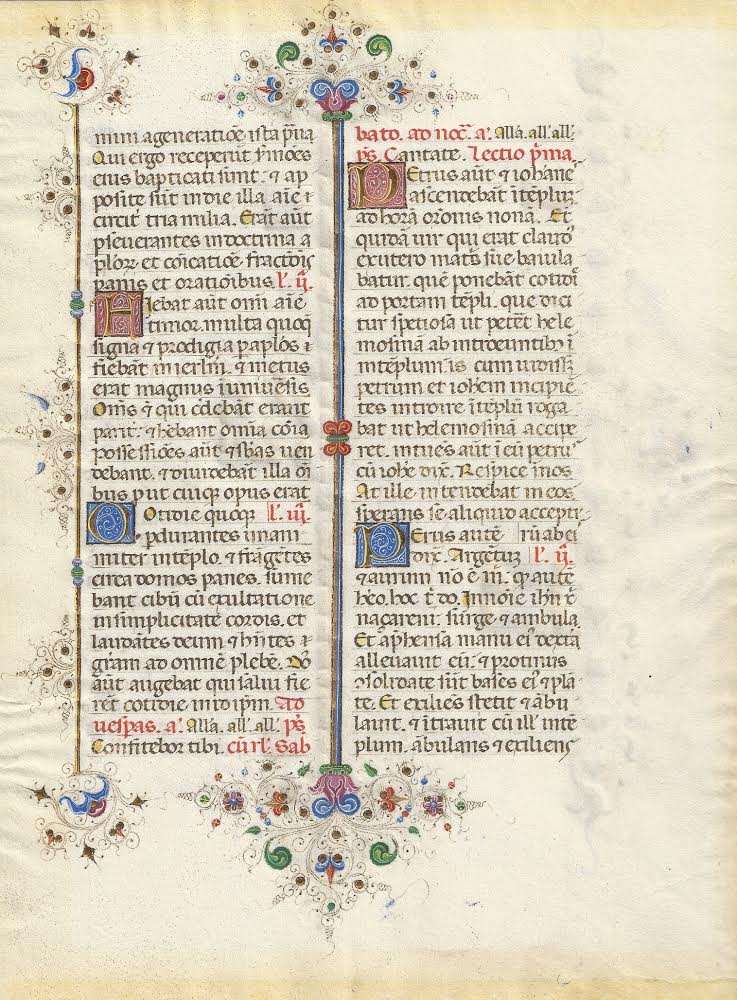 mini a generatiōe ista pͥua
Qui ergo receperūt ſ̉mōes
eius baptiçati sunt. ⁊ ap
posite sūt in die illa aīe ⁊
circit̉ tria milia. Erāt aūt
ꝑseuerantes in doctrina a
plorꝫ et cōicatiōe fractōis
panis et orationibus. l'. ii.
Fiebat aūt omī aīe
timor. multa quoqꝫ
signa ⁊ prodigia ꝑ apl̄os ⁊
fiebāt in ierl̄m. ⁊ metus
erat magnus ī uniūsis
Om̄s ⁊ qui c̄debāt erant
parit̉. ⁊ h̄ebant omīa cōia
possessiōes aūt ⁊ sb̄as uen
debant. ⁊ diuidebāt illa oī
bus put cuiqꝫ opus erat
Cotidie quoqꝫ l'. iii.
ꝑdurantes unani
miter in tēplo. ⁊ frāgētes
circa domos panes. sume
bant cibū cū exultatione
in simplicitate cordis. et
laudātes deum ⁊ hn̄tes ⁊
gram ad omnē plebē. Do
aūt augebat qui salui fie
rēt cotidie in id ipm̄. Ad
uesꝑas. a'. Alla. all. all. ps̄.
Confitebor tibi. cū rl'. Sab
bato. ad noc̄. a'. Alla. all'. all'.
ps̄. Cantate. Lectio pͥma.
Petrus aūt ⁊ iohāne
ascendebāt ī tēpluꝫ
ad horā orōnis nonā. Et
quidā uir qui erat claud'
ex utero matͥs sue baiula
batur. quē ponebāt cotidī
ad portam tēpli. que dici
tur spetiosa ut petēt hele
mosinā ab introeuntibꝫ ī
in tēplum. is cum uidiss̄ꝫ
petrum et ioh̄em incipiē
tes introire ī tēplū roga
bat ut helemosinā accipe
ret. intuēs aūt ī eū petru'
cū ioh̄e dix̄. Respice īnos
At ille intendebat in eos
sperans se aliquid acceptͥ
Petrus autē rū ab ei
dix̄. Argētuꝫ l'. ii.
⁊ aurum nō ē m̄. qꝫ autē
h̄eo. hoc t̄ do. In noīe ih̄u x̄
naçareni. surge ⁊ ambula
Et ap̄hensa manu ei' dextā
alleuauit eū. ⁊ protinus
ꝯsolidate sūt bases ei' ⁊ plā
te. Et exiliēs stetit ⁊ ābu
lauit. ⁊ ītrauit cū ill' in tē
plum. ābulans ⁊ exiliens